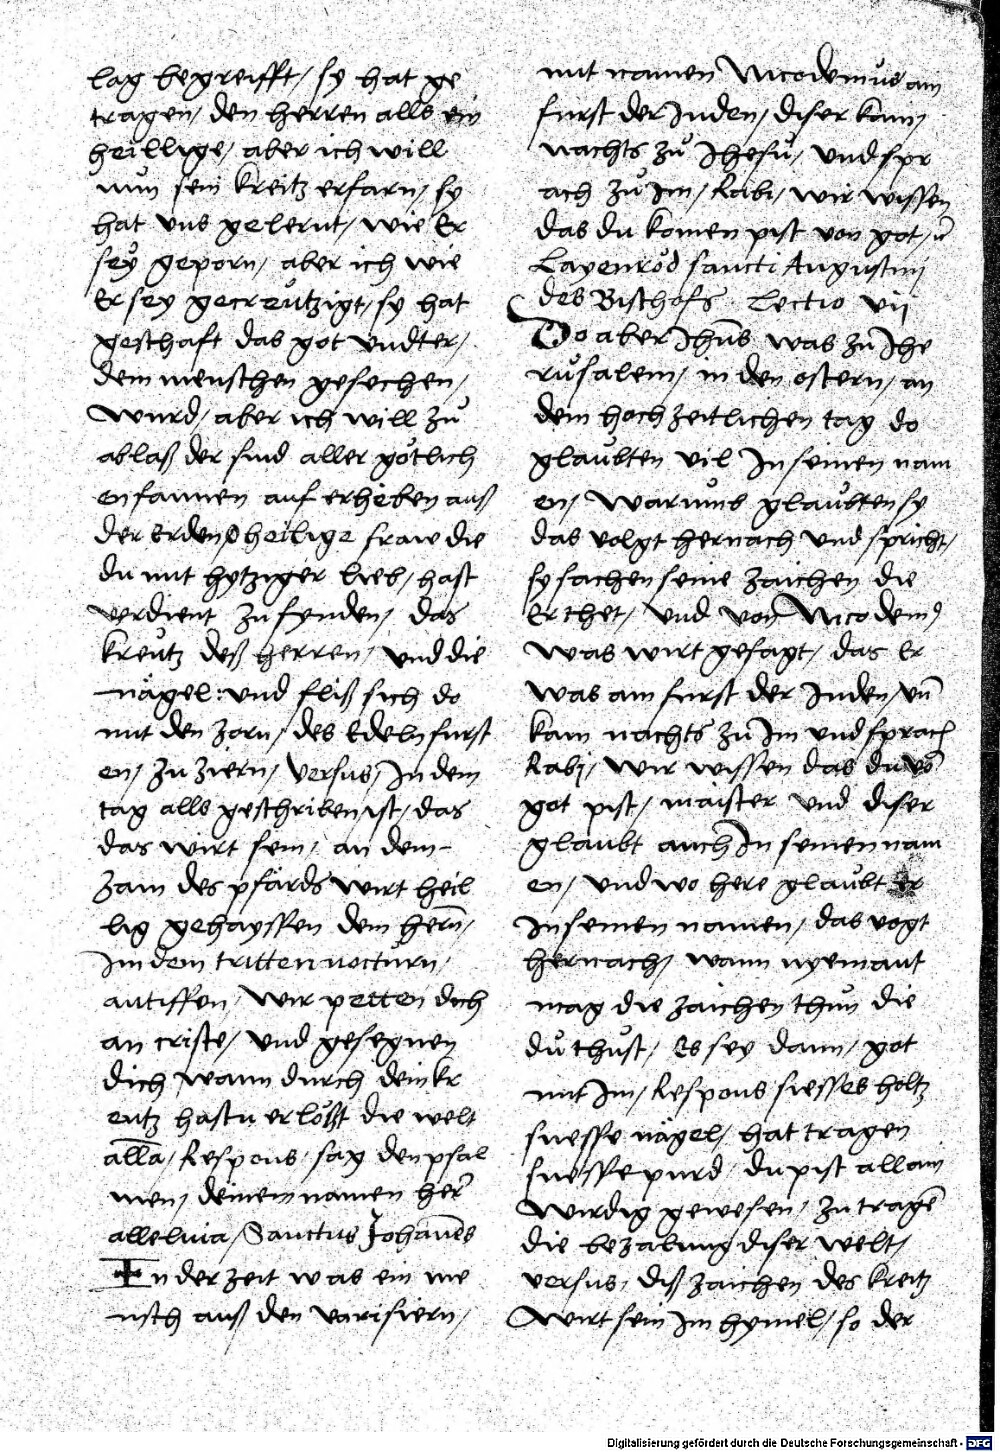 lag begreifft / sy hat ge
tragen / den herren alls ein
heillige / aber ich will
nun sein kreitz erfarn / sy
hat uns gelernt / wie Er
seÿ geporn / aber ich wie
Er sey gecreŭtzigt / sy hat
geschaft das got ŭndter /
dem menschen gesechen /
wurd / aber ich will zŭ
ablaß der sind aller götlich
en fannen auf erheben auß
der Erden / O heilige fraw die
du mit hytziger lieb / hast
verdient zu fynden / das
kreŭtz deß herren / und die
nägel : und fliß sich do
mit den zorn / des Edeln furst
en / zu ziern / versus / In dem
tag alls geschriben ist / das
das wirt sein / an dem
zam des pfärds wirt heil
lig gehayssen dem hern̄ /
Im dem tritten nocturn /
antiffen / Wir petten dich
an criste / und gesegnen
dich wann durch dein kr
eutz hastu erlößt die welt
alla / Respons / sag den psal
men / deinem namen her
alleluia / Sanctus Johannēs
In der zeit was ein me
nsch auß den varisiern /
mit namen Nicodemŭs ain
furst der Juden / diser kam /
nachts zŭ Jhesŭ / und spr
ach zŭ im / Rabi / wir wissen
das du komen pist von got / ū
Layenrŏd sancti Augustinj
des Bischofs . Lectio vij
Do aber Jhūs was zŭ Jhe
rŭsalem / in den ostern / an
dem hochzeitlichen tag do
glaŭbten vil In seinen nam
en / Warumb glaŭbten sy
das volgt hernach und spricht /
sy sachen seine zaichen die
Er thet / und von Nicodem9
was wirt gesagt / das Er
was ain furst der Juden / un̄
kam nachts zŭ Im und sprach
Rabj / wir wissen das du vō
got pist / maister und diser
glaubt auch In seinen nam
en / und wo here glaŭbt er
In seinen namen / das vogt
hernach / wann nyemant
mag die zaichen thŭn die
dŭ thŭst / Es sey dann / got
mit Im / Respons siesses holtz
suesse nägel / hat tragen
suesse purd / du pist allain
wirdig gewesen / zu tragē
die bezalung diser welt /
versus / diß zaichen des kreitz
Wirt sein Im hymel / so der
Digitalisierung gefördert durch die Deutsche Forschungsgemeinschaft - DFG